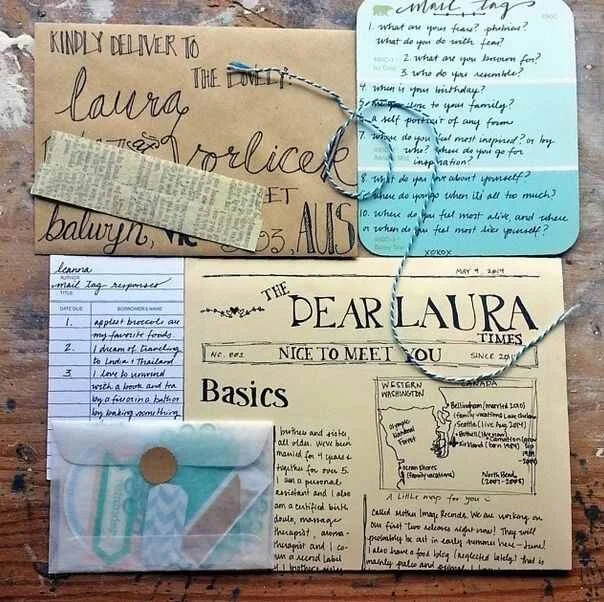 KINDLY DELIVER TO
THE LOVELY
laura
vorlicek
ET
balwyn, VIC 03, AUS
mail tag
1. what are your fears? phobias?
what do you do with fear?
2. what are you known for?
3. who do you resemble?
4. when is your birthday?
5. are you close to your family?
a self portrait of any form
7. where do you feel most inspired? or by
who? where do you go for
inspiration?
8. what do you love about yourself?
where do you go when it's all too much?
10. where do you feel most alive, and where
or when do you feel most like yourself?
XOXOX
leanna
AUTHOR
mail tag responses
TITLE
DATE DUE BORROWER'S NAME
1. apples + broccoli are
my favorite foods.
2. I dream of traveling
to India + Thailand
3 I love to unwind
with a book and tea
by a fire or in a bath or
by baking something
MAY 9, 2014
THE
DEAR LAURA
TIMES
NO. 001 NICE TO MEET YOU SINCE 201
Basics
brother and sister
all older. We've been
married for 4 years +
together for over 5.
am a personal
assistant and I also
am a certified birth
doula, massage
therapist, aroma-
therapist and I co-
own a record label
WESTERN
WASHINGTON
CANADA
Bellingham (married 2010)
(family vacations Lake
Seattle (live Aug 2014)
Bothell (live now)
Camation
Kirkland (born 1989)
Olympic
National
Forest
ocean shores
(family vacations)
North Bend
(2007-2008)
A little map for you
called Mother Image Records. We are working on
our first two releases right now! They will
probably be out in early summer here - June!
I also have a food blog (neglected lately) that is
mainly paleo and